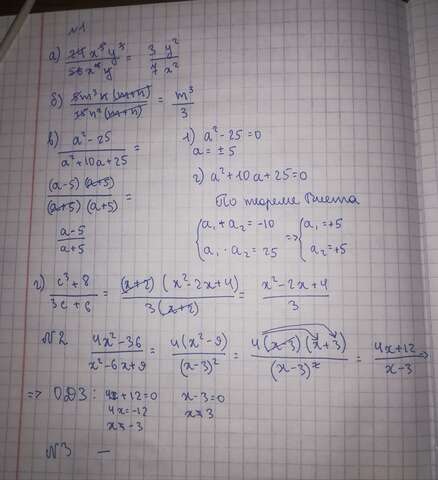 №1
а) 24x³y³ / 56x⁴y = 3y² / 7x²
б) 5m³n(m+n) / 15n²(m+n) = m³ / 3
в) a² - 25 / a² + 10a + 25 = 1) a² - 25 = 0
a = ± 5
(a-5)(a+5) / (a+5)(a+5) = 2) a² + 10a + 25 = 0
По теореме Виета
a-5 / a+5 { a₁ + a₂ = -10 => { a₁ = +5
a₁ · a₂ = 25 a₂ = +5
г) c³ + 8 / 3c + 6 = (x+2)(x² - 2x + 4) / 3(x+2) = x² - 2x + 4 / 3
№2 4x² - 36 / x² - 6x + 9 = 4(x² - 9) / (x-3)² = 4(x-3)(x+3) / (x-3)² = 4x + 12 / x - 3 =>
=> ОДЗ: 4x + 12 = 0 x - 3 = 0
4x = -12 x = 3
x = -3
№3 —